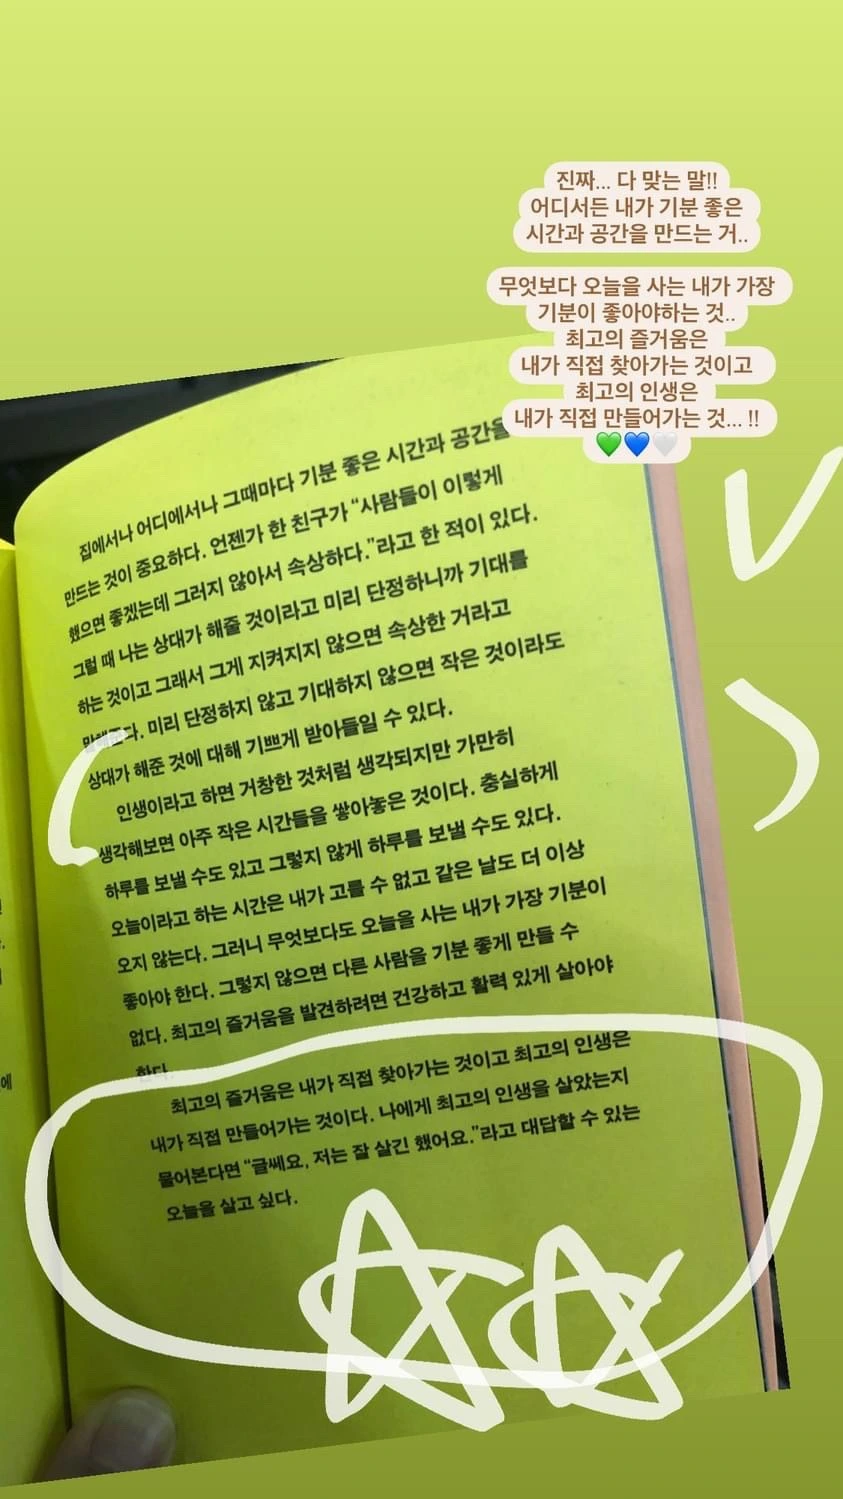 진짜... 다 맞는 말!!
어디서든 내가 기분 좋은
시간과 공간을 만드는 거..
무엇보다 오늘을 사는 내가 가장
기분이 좋아야하는 것..
최고의 즐거움은
내가 직접 찾아가는 것이고
최고의 인생은
내가 직접 만들어가는 것... !!
💚💙🤍
집에서나 어디에서나 그때마다 기분 좋은 시간과 공간을
만드는 것이 중요하다. 언젠가 한 친구가 “사람들이 이렇게
했으면 좋겠는데 그러지 않아서 속상하다.”라고 한 적이 있다.
그럴 때 나는 상대가 해줄 것이라고 미리 단정하니까 기대를
하는 것이고 그래서 그게 지켜지지 않으면 속상한 거라고
말해준다. 미리 단정하지 않고 기대하지 않으면 작은 것이라도
상대가 해준 것에 대해 기쁘게 받아들일 수 있다.
인생이라고 하면 거창한 것처럼 생각되지만 가만히
생각해보면 아주 작은 시간들을 쌓아놓은 것이다. 충실하게
하루를 보낼 수도 있고 그렇지 않게 하루를 보낼 수도 있다.
오늘이라고 하는 시간은 내가 고를 수 없고 같은 날도 더 이상
오지 않는다. 그러니 무엇보다도 오늘을 사는 내가 가장 기분이
좋아야 한다. 그렇지 않으면 다른 사람을 기분 좋게 만들 수
없다. 최고의 즐거움을 발견하려면 건강하고 활력 있게 살아야
한다.
최고의 즐거움은 내가 직접 찾아가는 것이고 최고의 인생은
내가 직접 만들어가는 것이다. 나에게 최고의 인생을 살았는지
물어본다면 “글쎄요, 저는 잘 살긴 했어요.”라고 대답할 수 있는
오늘을 살고 싶다.
에